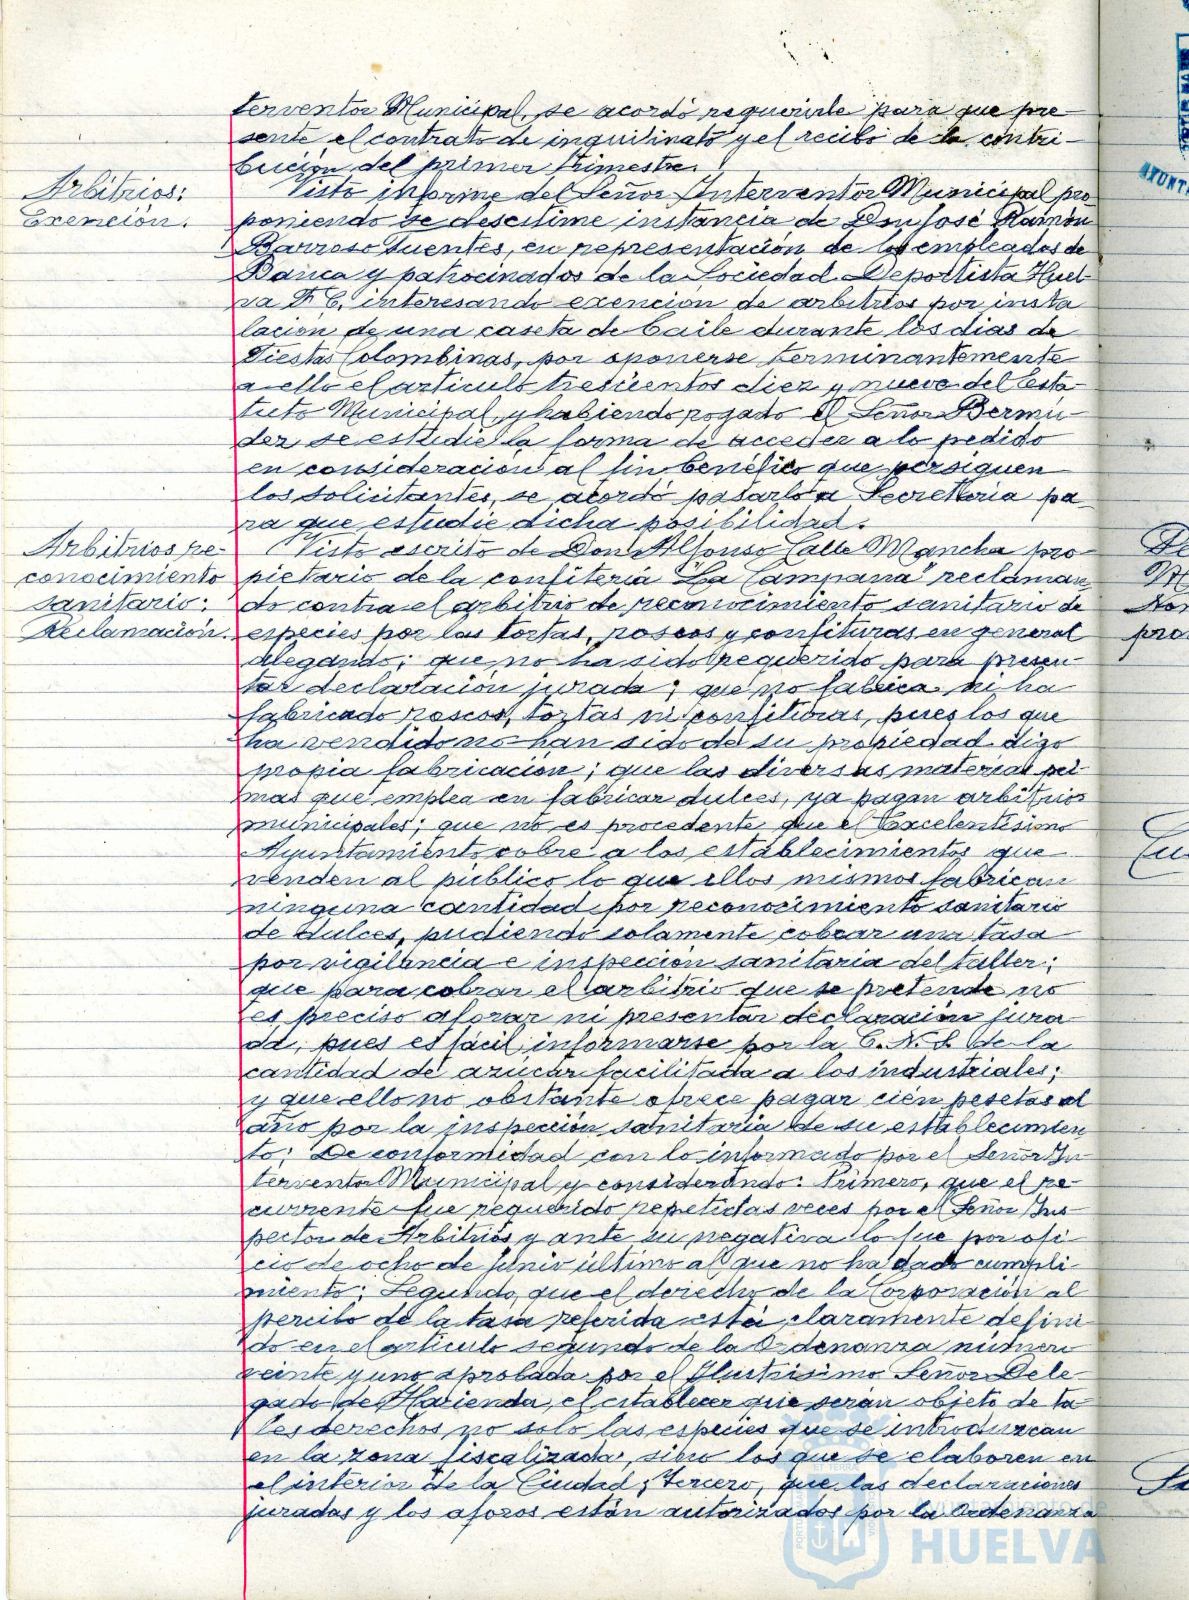 terventor Municipal, se acordó requerirle para que pre-
sente el contrato de inquilinato y el recibo de la contri-
bución del primer trimestre.
Arbitrios:
Exención.
Visto informe del Señor Interventor Municipal pro-
poniendo se desestime instancia de Don José Ramón
Barroso Fuentes, en representación de los empleados de
Banca y patrocinados de la Sociedad Deportista Huel-
va F. C. interesando exención de arbitrios por insta
lación de una caseta de baile durante los dias de
Fiestas Colombinas, por oponerse terminantemente
a ello el artículo trescientos diez y nueve del Esta-
tuto Municipal, y habiendo rogado el Señor Bermú-
dez se estudie la forma de acceder a lo pedido
en consideración al fin benéfico que persiguen
los solicitantes, se acordó pasarlo a Secretaria pa-
ra que estudie dicha posibilidad.
Arbitrios re-
conocimiento
sanitario:
Reclamación.
Visto escrito de Don Alfonso Calle Mancha pro-
pietario de la confitería "La Campana" reclaman-
do contra el arbitrio de reconocimiento sanitario de
especies por las tortas, roscos y confituras en general
alegando; que no ha sido requerido para presen-
tar declaración jurada; que no fabrica ni ha
fabricado roscos, tortas ni confituras, pues los que
ha vendido no han sido de su propiedad digo
propia fabricación; que las diversas materias pri-
mas que emplea en fabricar dulces, ya pagan arbitrios
municipales; que no es procedente que el Excelentísimo
Ayuntamiento cobre a los establecimientos que
venden al público lo que ellos mismos fabrican
ninguna cantidad por reconocimiento sanitario
de dulces, pudiendo solamente cobrar una tasa
por vigilancia e inspección sanitaria del taller;
que para cobrar el arbitrio que se pretende no
es preciso aforar ni presentar declaración jura-
da, pues es fácil informarse por la C. N. S. de la
cantidad de azúcar facilitada a los industriales;
y que ello no obstante ofrece pagar cien pesetas al
año por la inspección sanitaria de su establecimien
to; De conformidad con lo informado por el Señor In
terventor Municipal y considerando: Primero, que el re-
currente fue requerido repetidas veces por el Señor Ins
pector de Arbitrios y ante su negativa lo fue por ofi
cio de ocho de junio último al que no ha dado cumpli-
miento; Segundo, que el derecho de la Corporación al
percibo de la tasa referida está claramente defini
do en el artículo segundo de la Ordenanza número
veinte y uno aprobada por el Ilustrísimo Señor Dele
gado de Hacienda, el establecer que serán objeto de ta
les derechos no solo las especies que se introduzcan
en la zona fiscalizada, sino los que se elaboren en
el interior de la Ciudad; Tercero, que las declaraciones
juradas y los aforos están autorizados por la Ordenanza
Ayuntamiento de
HUELVA